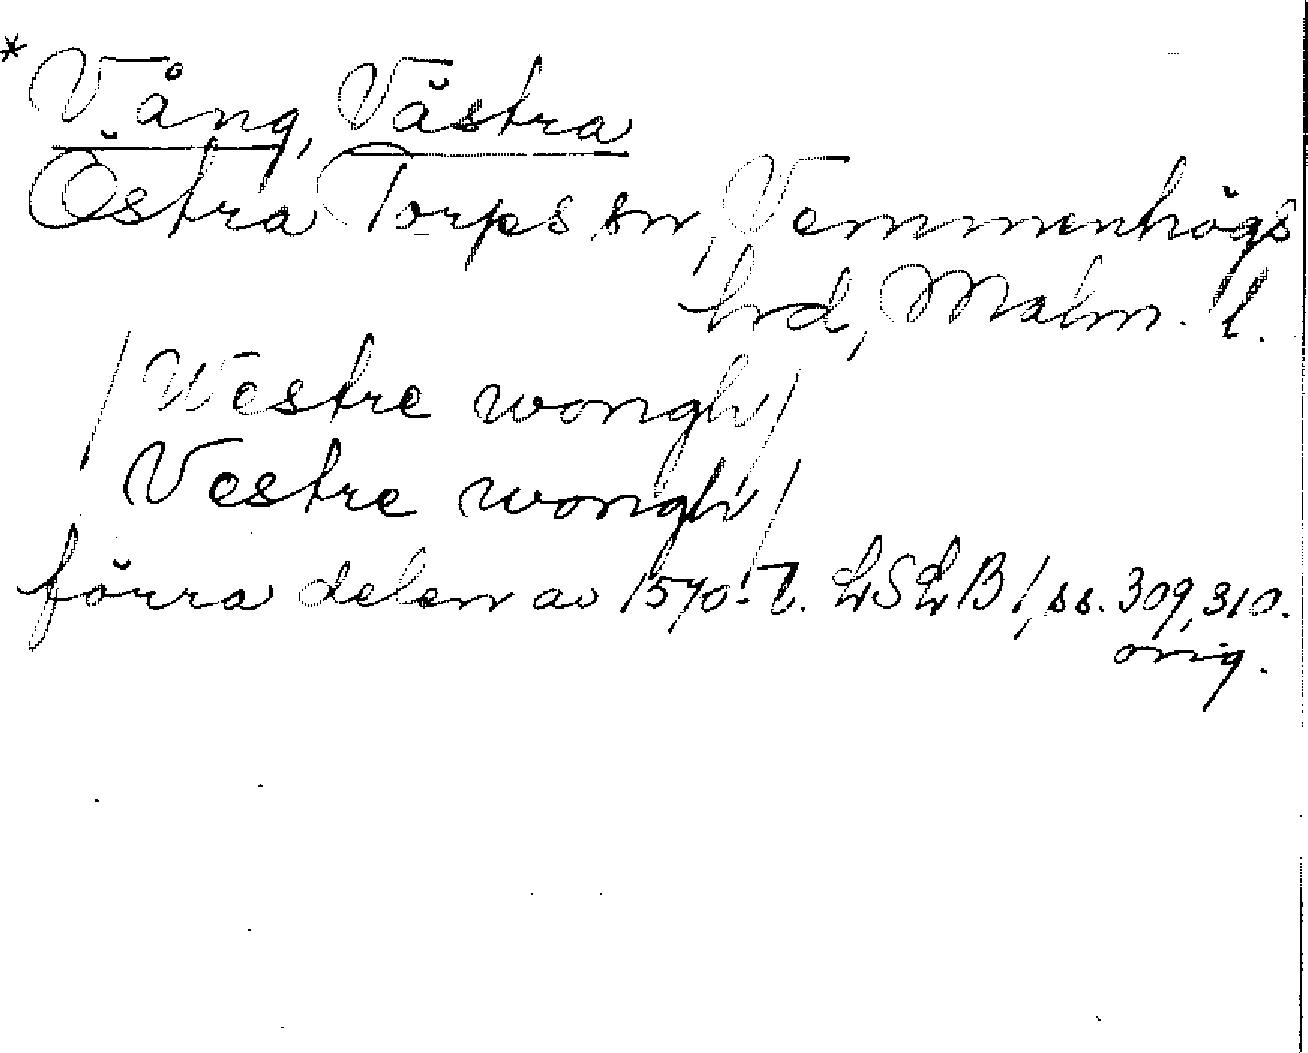 *Vång, Västra
Östra Torps sn, Vemmenhögs
hd, Malm. l.
/Westre wongh/
Vestre wongh/
förra delen av 1570-t. LSLB 1, ss. 309, 310.
orig.